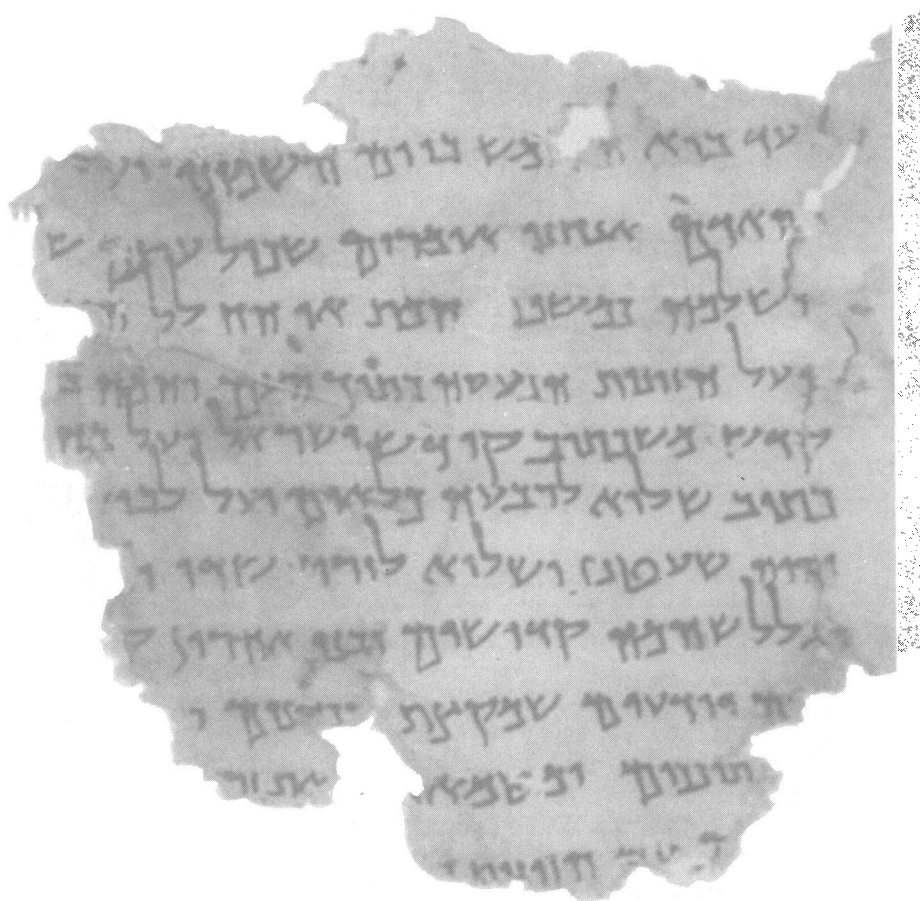 עד בוא השמש ביום השמיני ועל
האדם אנחנו אומרים שכול עצם ש
ושלמה כמשפט המת או החלל הו
ועל הזונות הנעסה בתוך העם והמה ב
קודש משכתוב קודש ישראל ועל
כתוב שלוא לרבעה כלאים ועל לבוש
יהיה שעטנז ושלוא לזרוע שדו ו
בגלל שהמה קדושים ובני אהרון ק
יודעים שמקצת הכהנים ו
ומטמא את זר
הזונות